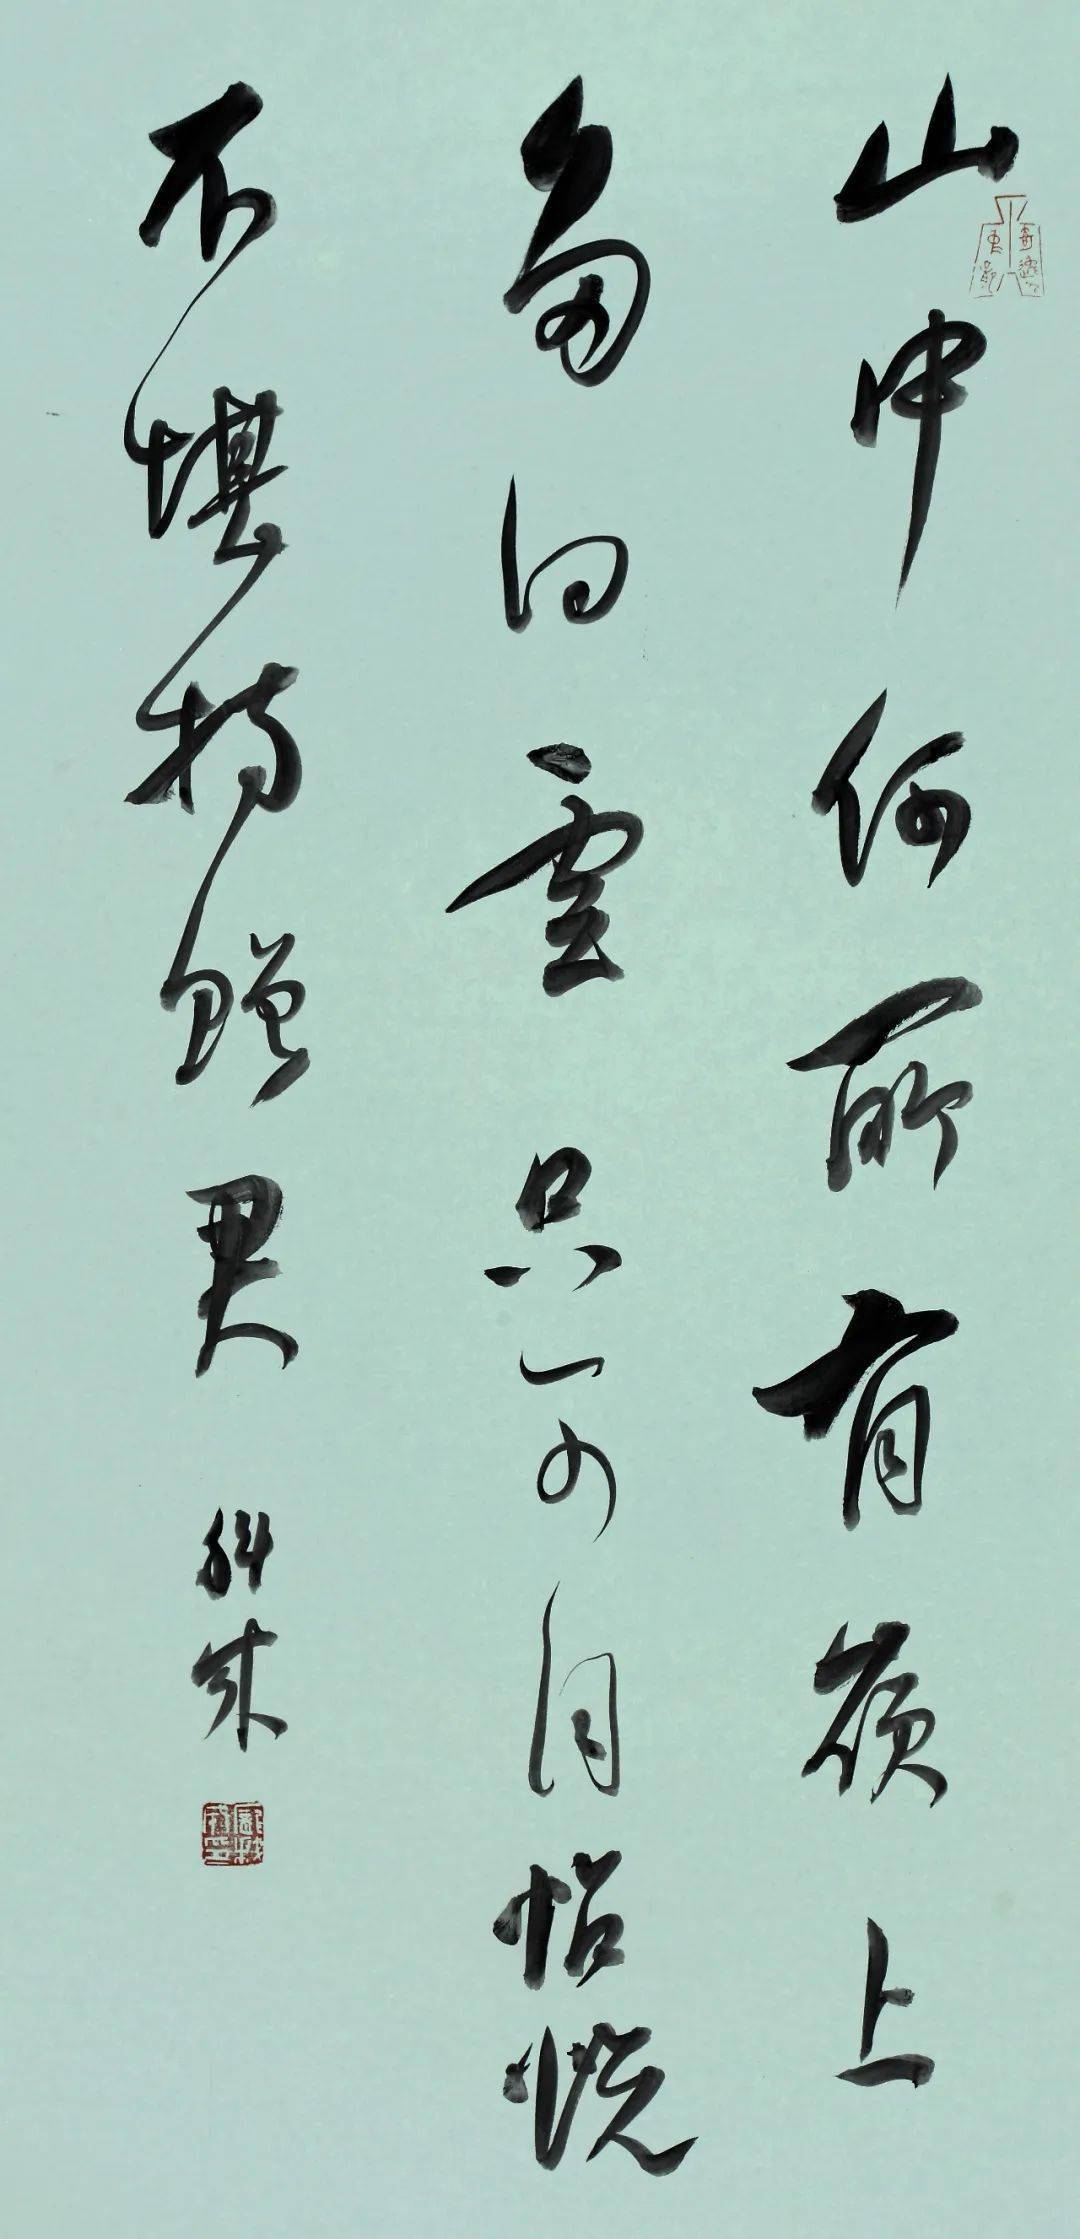 山中何所有嶺上
多白雲只可自怡悦
不堪持贈君